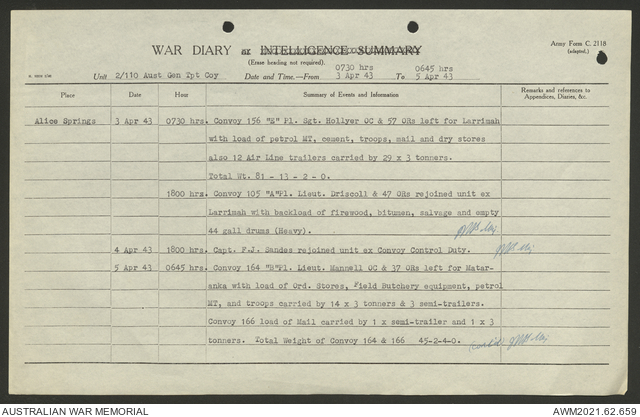 WAR DIARY or INTELLIGENCE SUMMARY
Army Form C. 2118
(adapted.)
(Erase heading not required).
0730 hrs 0645 hrs
Unit 2/110 Aust Gen Tpt Coy Date and Time.—From 3 Apr 43 To 5 Apr 43
Place Date Hour Summary of Events and Information Remarks and references to Appendices, Diaries, &c.
Alice Springs 3 Apr 43 0730 hrs. Convoy 156 "E" Pl. Sgt. Hollyer OC & 57 ORs left for Larrimah
with load of petrol MT, cement, troops, mail and dry stores
also 12 Air Line trailers carried by 29 x 3 tonners.
Total Wt. 81 - 13 - 2 - 0.
1800 hrs. Convoy 105 "A"Pl. Lieut. Driscoll & 47 ORs rejoined unit ex
Larrimah with backload of firewood, bitumen, salvage and empty
44 gall drums (Heavy).
4 Apr 43 1800 hrs. Capt. F.J. Sandes rejoined unit ex Convoy Control Duty.
5 Apr 43 0645 hrs. Convoy 164 "B"Pl. Lieut. Mannell OC & 37 ORs left for Matar-
anka with load of Ord. Stores, Field Butchery equipment, petrol
MT, and troops carried by 14 x 3 tonners & 3 semi-trailers.
Convoy 166 load of Mail carried by 1 x semi-trailer and 1 x 3
tonners. Total Weight of Convoy 164 & 166 45-2-4-0. (cont'd)
AUSTRALIAN WAR MEMORIAL AWM2021.62.659